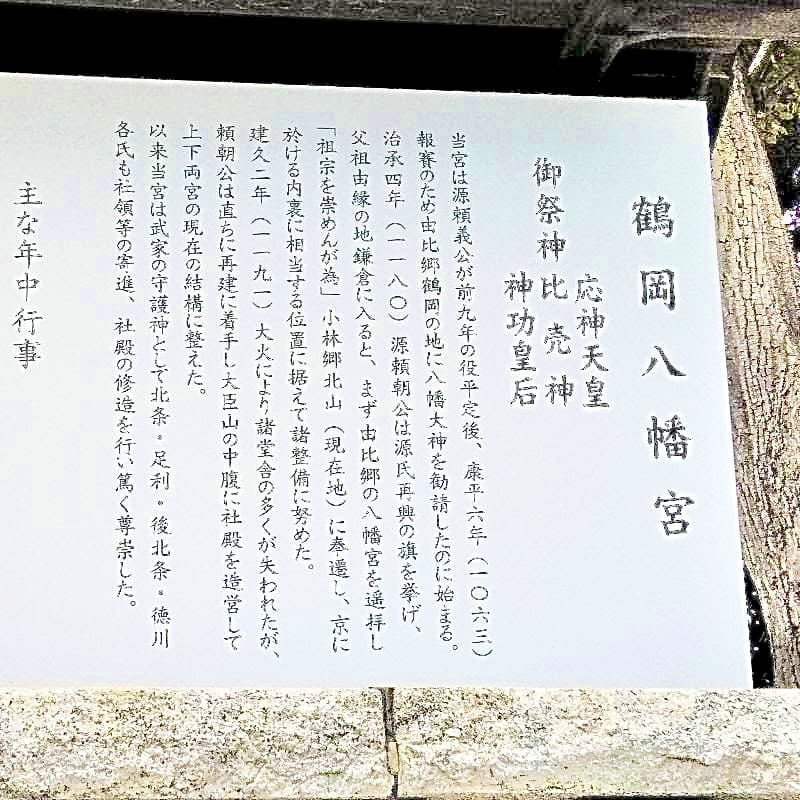 鶴岡八幡宮
応神天皇
御祭神比売神
神功皇后
当宮は源頼義公が前九年の役平定後、康平六年（一〇六三）
報賽のため由比郷鶴岡の地に八幡大神を勧請したのに始まる。
治承四年（一一八〇）源頼朝公は源氏再興の旗を挙げ、
父祖由縁の地鎌倉に入ると、まず由比郷の八幡宮を遥拝し
「祖宗を崇めんが為」小林郷北山（現在地）に奉遷し、京に
於ける内裏に相当する位置に据えて諸整備に努めた。
建久二年（一一九一）大火により諸堂舎の多くが失われたが、
頼朝公は直ちに再建に着手し大臣山の中腹に社殿を造営して
上下両宮の現在の結構に整えた。
以来当宮は武家の守護神として北条。足利。後北条。徳川
各氏も社領等の寄進、社殿の修造を行い篤く尊崇した。
主な年中行事